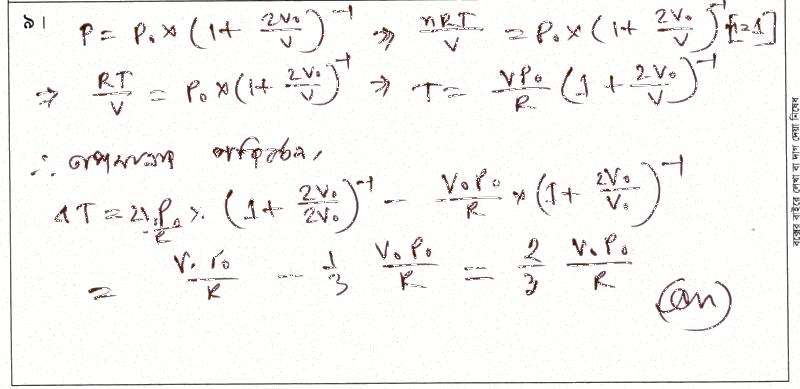 ৯। P = P₀ × (1 + 2V₀/V)⁻¹ ⇒ nRT/V = P₀ × (1 + 2V₀/V)⁻¹ [n=1]
⇒ RT/V = P₀ × (1 + 2V₀/V)⁻¹ ⇒ T = VP₀/R (1 + 2V₀/V)⁻¹
∴ তাপমাত্রার পরিবর্তন,
ΔT = 2V₀P₀/R × (1 + 2V₀/2V₀)⁻¹ - V₀P₀/R × (1 + 2V₀/V₀)⁻¹
= V₀P₀/R - 1/3 V₀P₀/R = 2/3 V₀P₀/R (Ans)
বক্সের বাইরে লেখা বা দাগ দেয়া নিষেধ